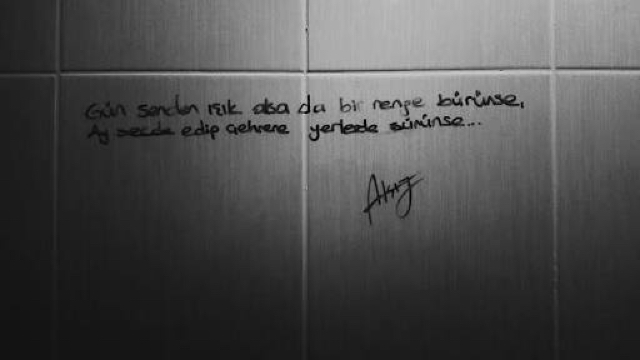 Gün senden ışık alsa da bir renge bürünse,
Ay secde edip çehrene yerlerde sürünse...